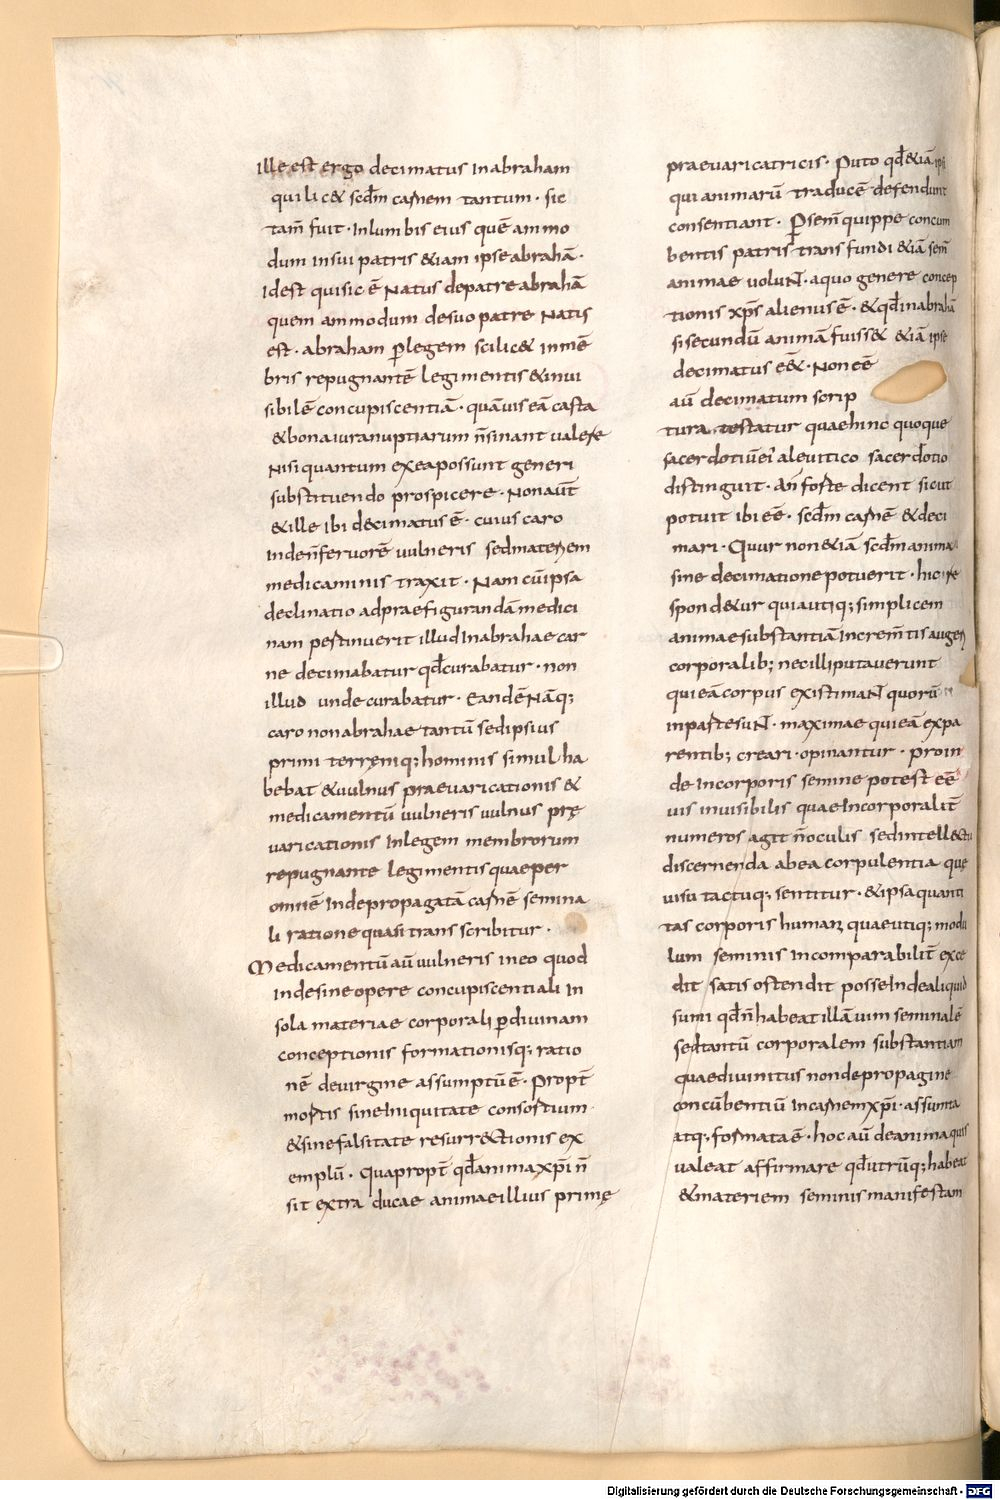 Ille est ergo decimatus Inabraham
qui lic& scdm carnem tantum · sic
tam̄ fuit · Inlumbis eius quē ammo
dum insui patris &iam ipseabrahā ·
Idest quisic ē Natus depatreabrahā
quem ammodum desuo patre Natis
est · abraham p̲legem scilic& inmē
bris repugnantē legimentis &inui
sibilē concupiscentiā · quāuis eā casta
&bonaiuranuptiarum n̄sinant ualere
Nisi quantum exeapossunt generi
substituendo prospicere · Nonaūt
&ille ibi decimatus ē · cuius caro
Inden̄feruorē uulneris sedmateriem
medicaminis traxit · Nam cūipsa
declinatio adpraefigurandā medici
nam pestinuerit illudInabrahae car
ne decimabatur qđcurabatur · non
illud unde curabatur · Eandē Nāq;
caro nonabrahae tantū sedipsius
primi terręniq; hominis simul ha
bebat &uulnus praeuaricationis &
medicamentū uulneris uulnus prę
uaricationis Inlegem membrorum
repugnante legimentis quaeper
omnē Indepropagatā carnē semina
li ratione quasi trans scribitur ·
Medicamentū aū uulneris ineo quod
Indesineopere concupiscentiali In
sola materiae corporali p̲diuinam
conceptionis formationisq; ratio
nē deuirgine assumptū ē · Propt̄
mortis sineIniquitate consortium
&sinefalsitate resurrectionis ex
emplū · Quapropt̄ qđanimaxpi n̄
sit extra ducae animaeillius primę
praeuaricatricis · Puto qđ&iā ipsi
qui animarū traducē defendunt
consentiant · P̲ sem̄ quippe concum
bentis patris trans fundi &iā sem̄
animae uoluNT · aquo genere concep
tionis xps alienus ē · &qđinabrahā
sisecundū animā fuiss& &iā ipse
decimatus eē& · Non eē
aū decimatum scrip
tura testatur quaehinc quoque
sacerdotiū ei aleuitico sacerdotio
distinguit · An̄ forte dicent sicut
potuit ibi eē · scdm carnē &deci
mari · Quur non&iā scdm anima
sine decimatione potuerit · hic re
spond&ur quiautiq; simplicem
animaesubstantiā Increm̄tis augeri
corporalib; necilliputauerunt
quieācorpus existimaNT quorū
inpartesuNT · maximae quieā expa
rentib; creari · opinantur · proin
de Incorporis semine potest eē
uis inuisibilis quaeIncorporalit̄
numeros agit n̄oculis sedintellectu
discernenda abea corpulentia que
uisu tactuq; sentitur · &ipsa quanti
tas corporis humani quaeutiq; modu
lum seminis Incomparabilit̄ exce
dit satis ostendit posseIndealiquid
sumi qđn̄habeat illā uim seminalē
sedtantū corporalem substantiam
quaediuinitus nondepropagine
concūbentiū Incarnem xpi · assumta
atq; formata ē · hoc aū deanima quis
ualeat affirmare qđutrūq; habeat
&materiem seminis manifestam
Digitalisierung gefördert durch die Deutsche Forschungsgemeinschaft - DFG